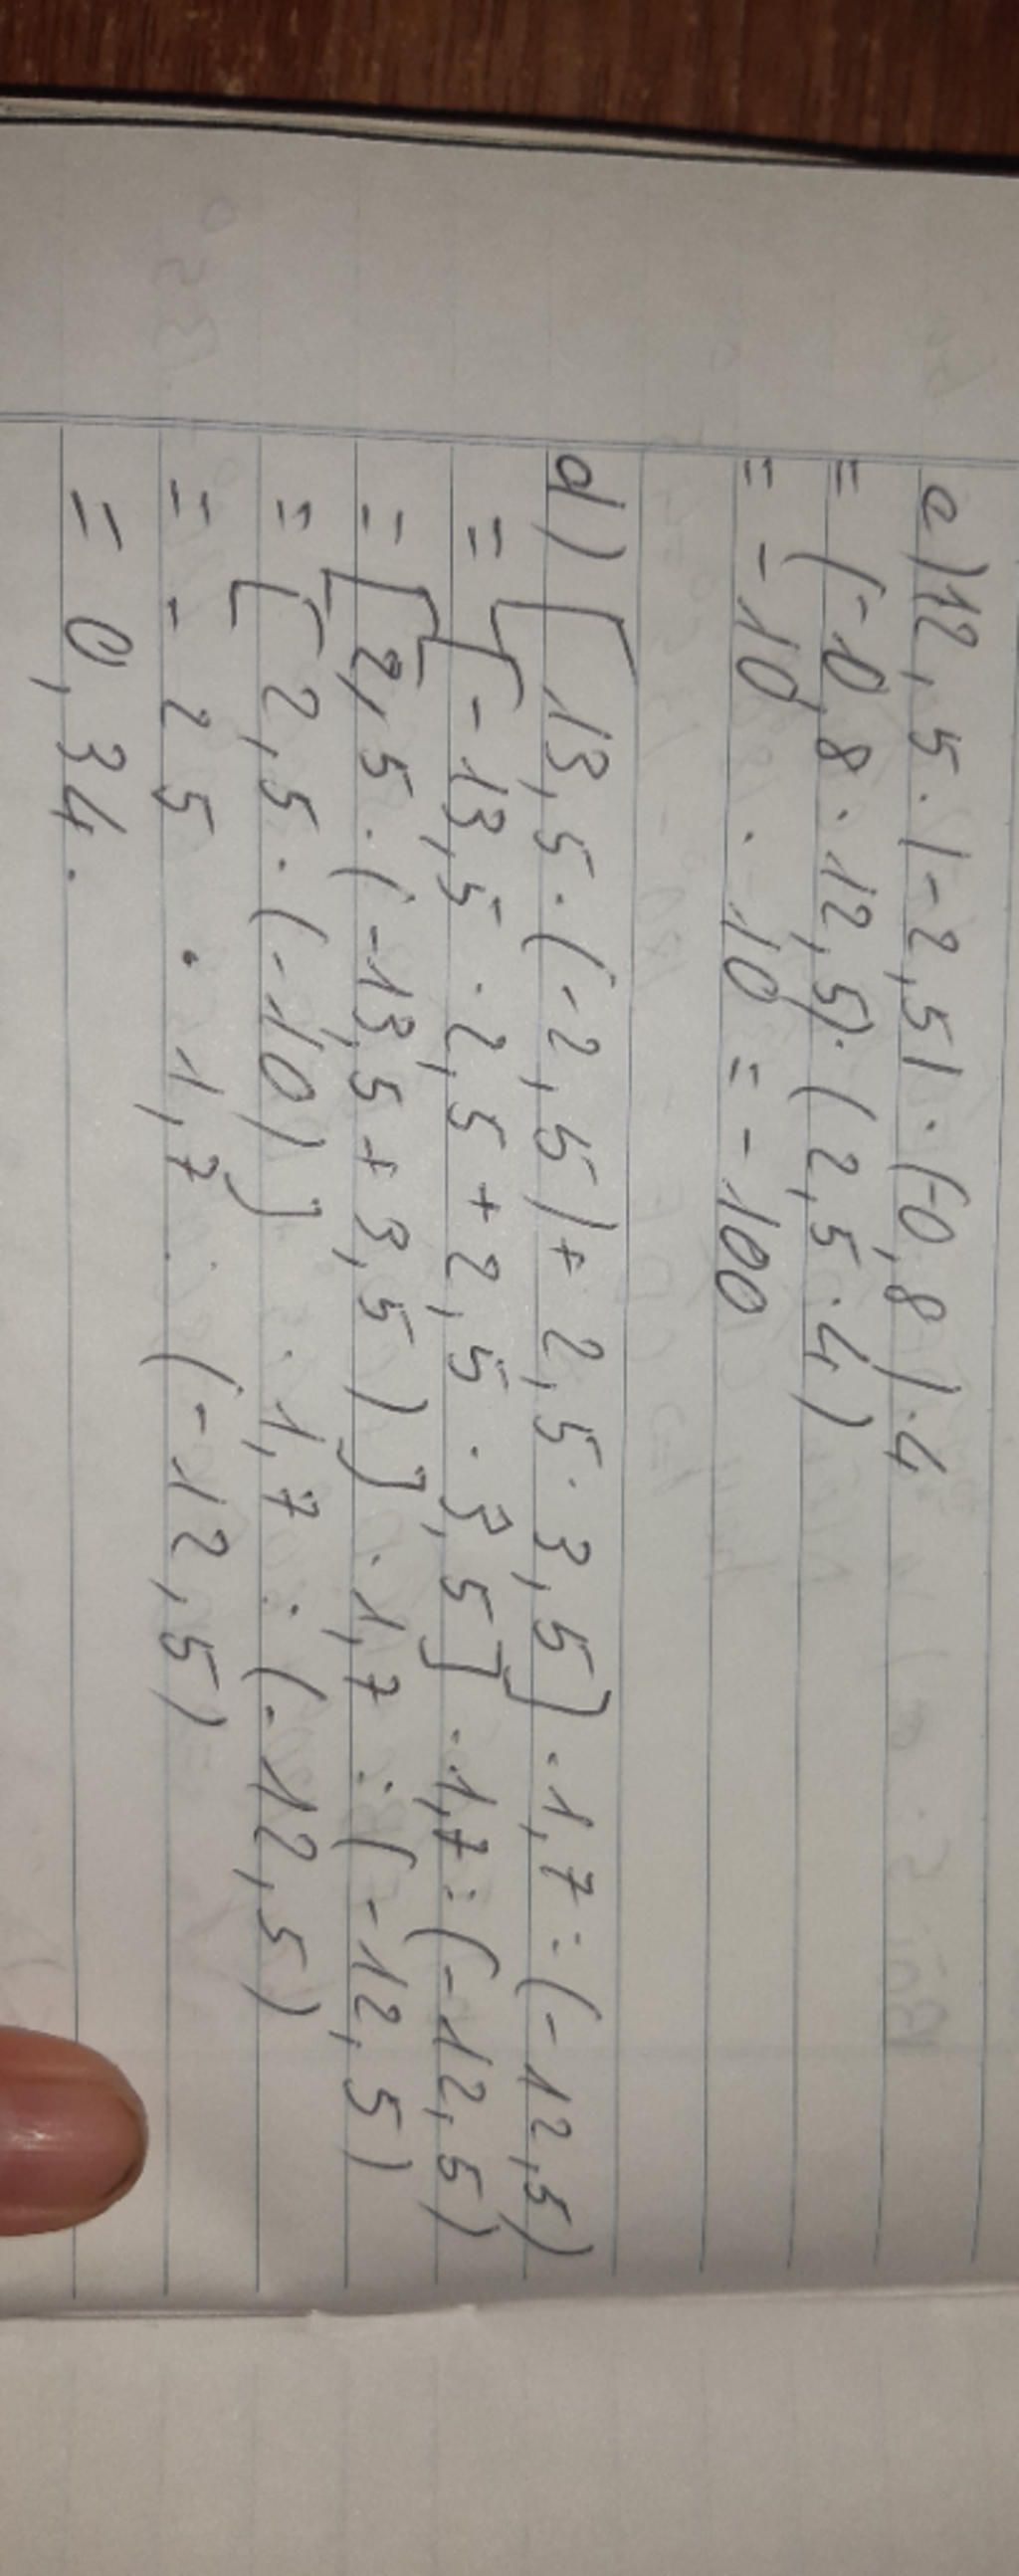 c) 12,5 . |-2,5| . (-0,8) . 4
= (-0,8 . 12,5) . (2,5 . 4)
= -10 . 10 = -100
d) [13,5 . (-2,5) + 2,5 . 3,5] . 1,7 : (-12,5)
= [-13,5 . 2,5 + 2,5 . 3,5] . 1,7 : (-12,5)
= [2,5 . (-13,5 + 3,5)] . 1,7 : (-12,5)
= [2,5 . (-10)] . 1,7 : (-12,5)
= - 25 . 1,7 : (-12,5)
= 0,34.